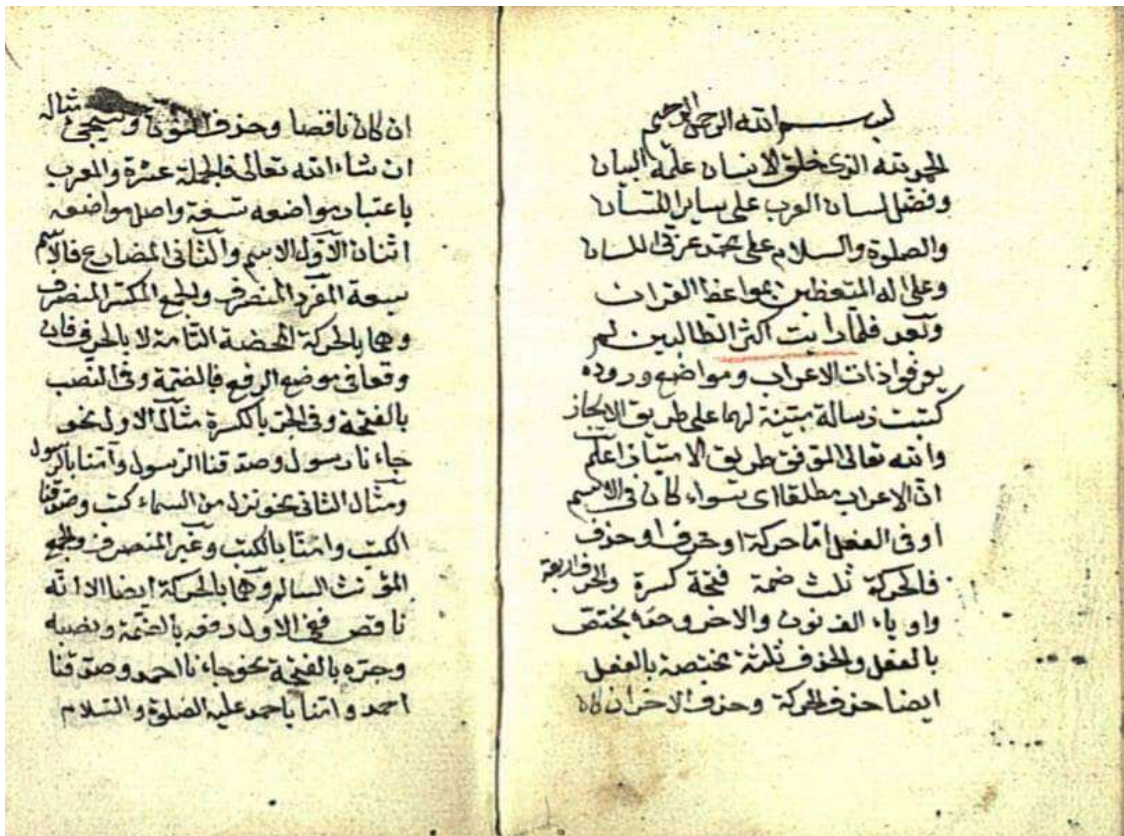 بسم الله الرحمن الرحيم
الحمد لله الذى خلق الانسان علمه البيان
وفضل لسان العرب على ساير اللسان
والصلوة والسلام على محمد عربى اللسان
وعلى اله المتعظين بمواعظ القران
وبعد فلما رايت اكثر الطالبين لم
يعرفوا ذات الاعراب ومواضع وروده
كتبت رسالة مبينة لهما على طريق الايجاز
والله تعالى الموفق طريق الامتياز اعلم
ان الاعراب مطلقا اى سواء كان فى الاسم
او فى الفعل اما حركة او حرف او حذف
فالحركة ثلث ضمة فتحة كسرة والحرف اربعة
واو ياء الف نون والاخر وحده يختص
بالفعل والحذف ثلثة مختصة بالفعل
ايضا حذف الحركة وحذف الاخر ان كان
ان كان ناقصا وحذف النون وسيجئ مثاله
ان شاء الله تعالى فالجملة عشرة والمعرب
باعتبار مواضعه تسعة واصل مواضعه
اثنان الاول الاسم والثانى المضارع فالاسم
سبعة المفرد المنصرف والجمع المكسر المنصرف
وهما بالحركة المحضة التامة لا بالحرف فان
وقعا فى موضع الرفع فالضمة وفى النصب
بالفتحة وفى الجر بالكسرة مثال الاول نحو
جاءنا رسول وصدقنا الرسول وآمنا بالرسول
ومثال الثانى نحو نزل من السماء كتب وصدقنا
الكتب وامنا بالكتب وغير المنصرف والجمع
المؤنث السالم وهما بالحركة ايضا الا انه
ناقص ففى الاول رفعه بالضمة ونصبه
وجره بالفتحة نحو جاءنا احمد وصدقنا
احمد وامنا باحمد عليه الصلوة والسلام